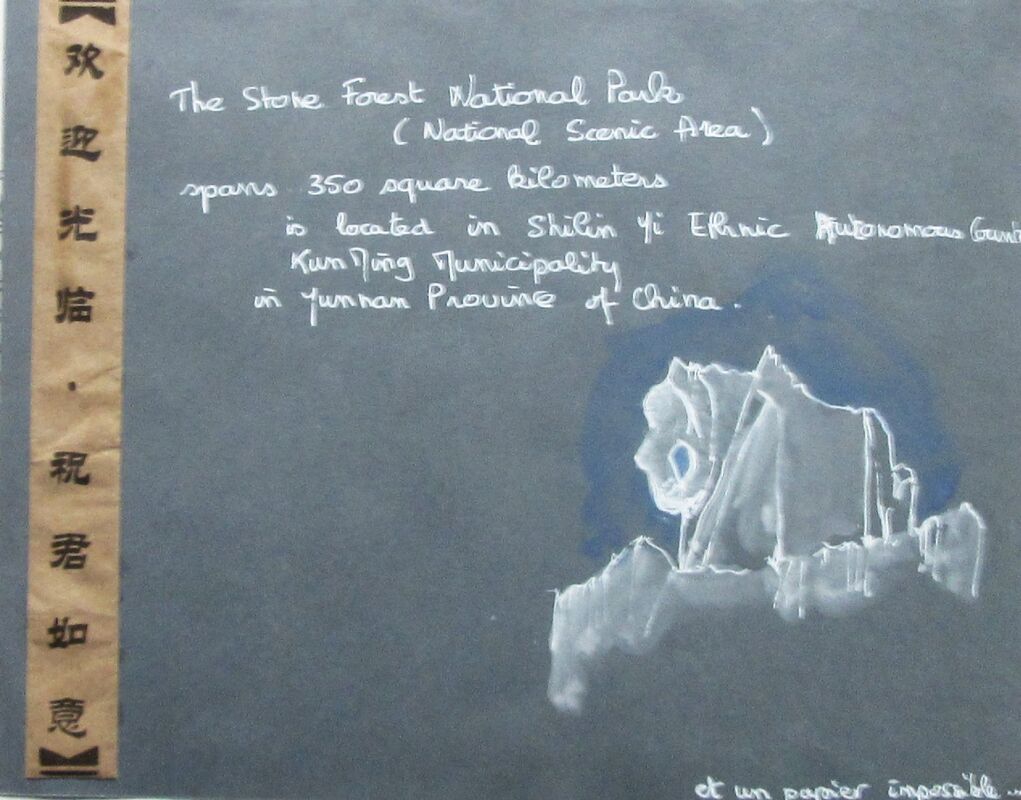 欢迎光临·祝君如意
The Stone Forest National Park
(National Scenic Area)
spans 350 square kilometers
is located in Shilin Yi Ethnic Autonomous
KunMing Municipality
in Yunnan Province of China.
et un papier impossible...